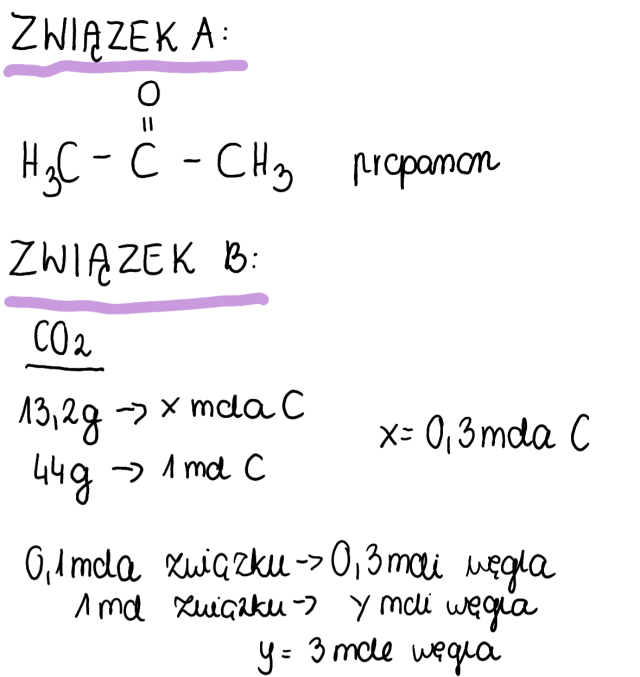 ZWIĄZEK A:
O
||
H₃C – C – CH₃ propanon
ZWIĄZEK B:
CO₂
13,2g → x mola C
x = 0,3 mola C
44g → 1 mol C
0,1 mola związku → 0,3 moli węgla
1 mol związku → y moli węgla
y = 3 mole węgla